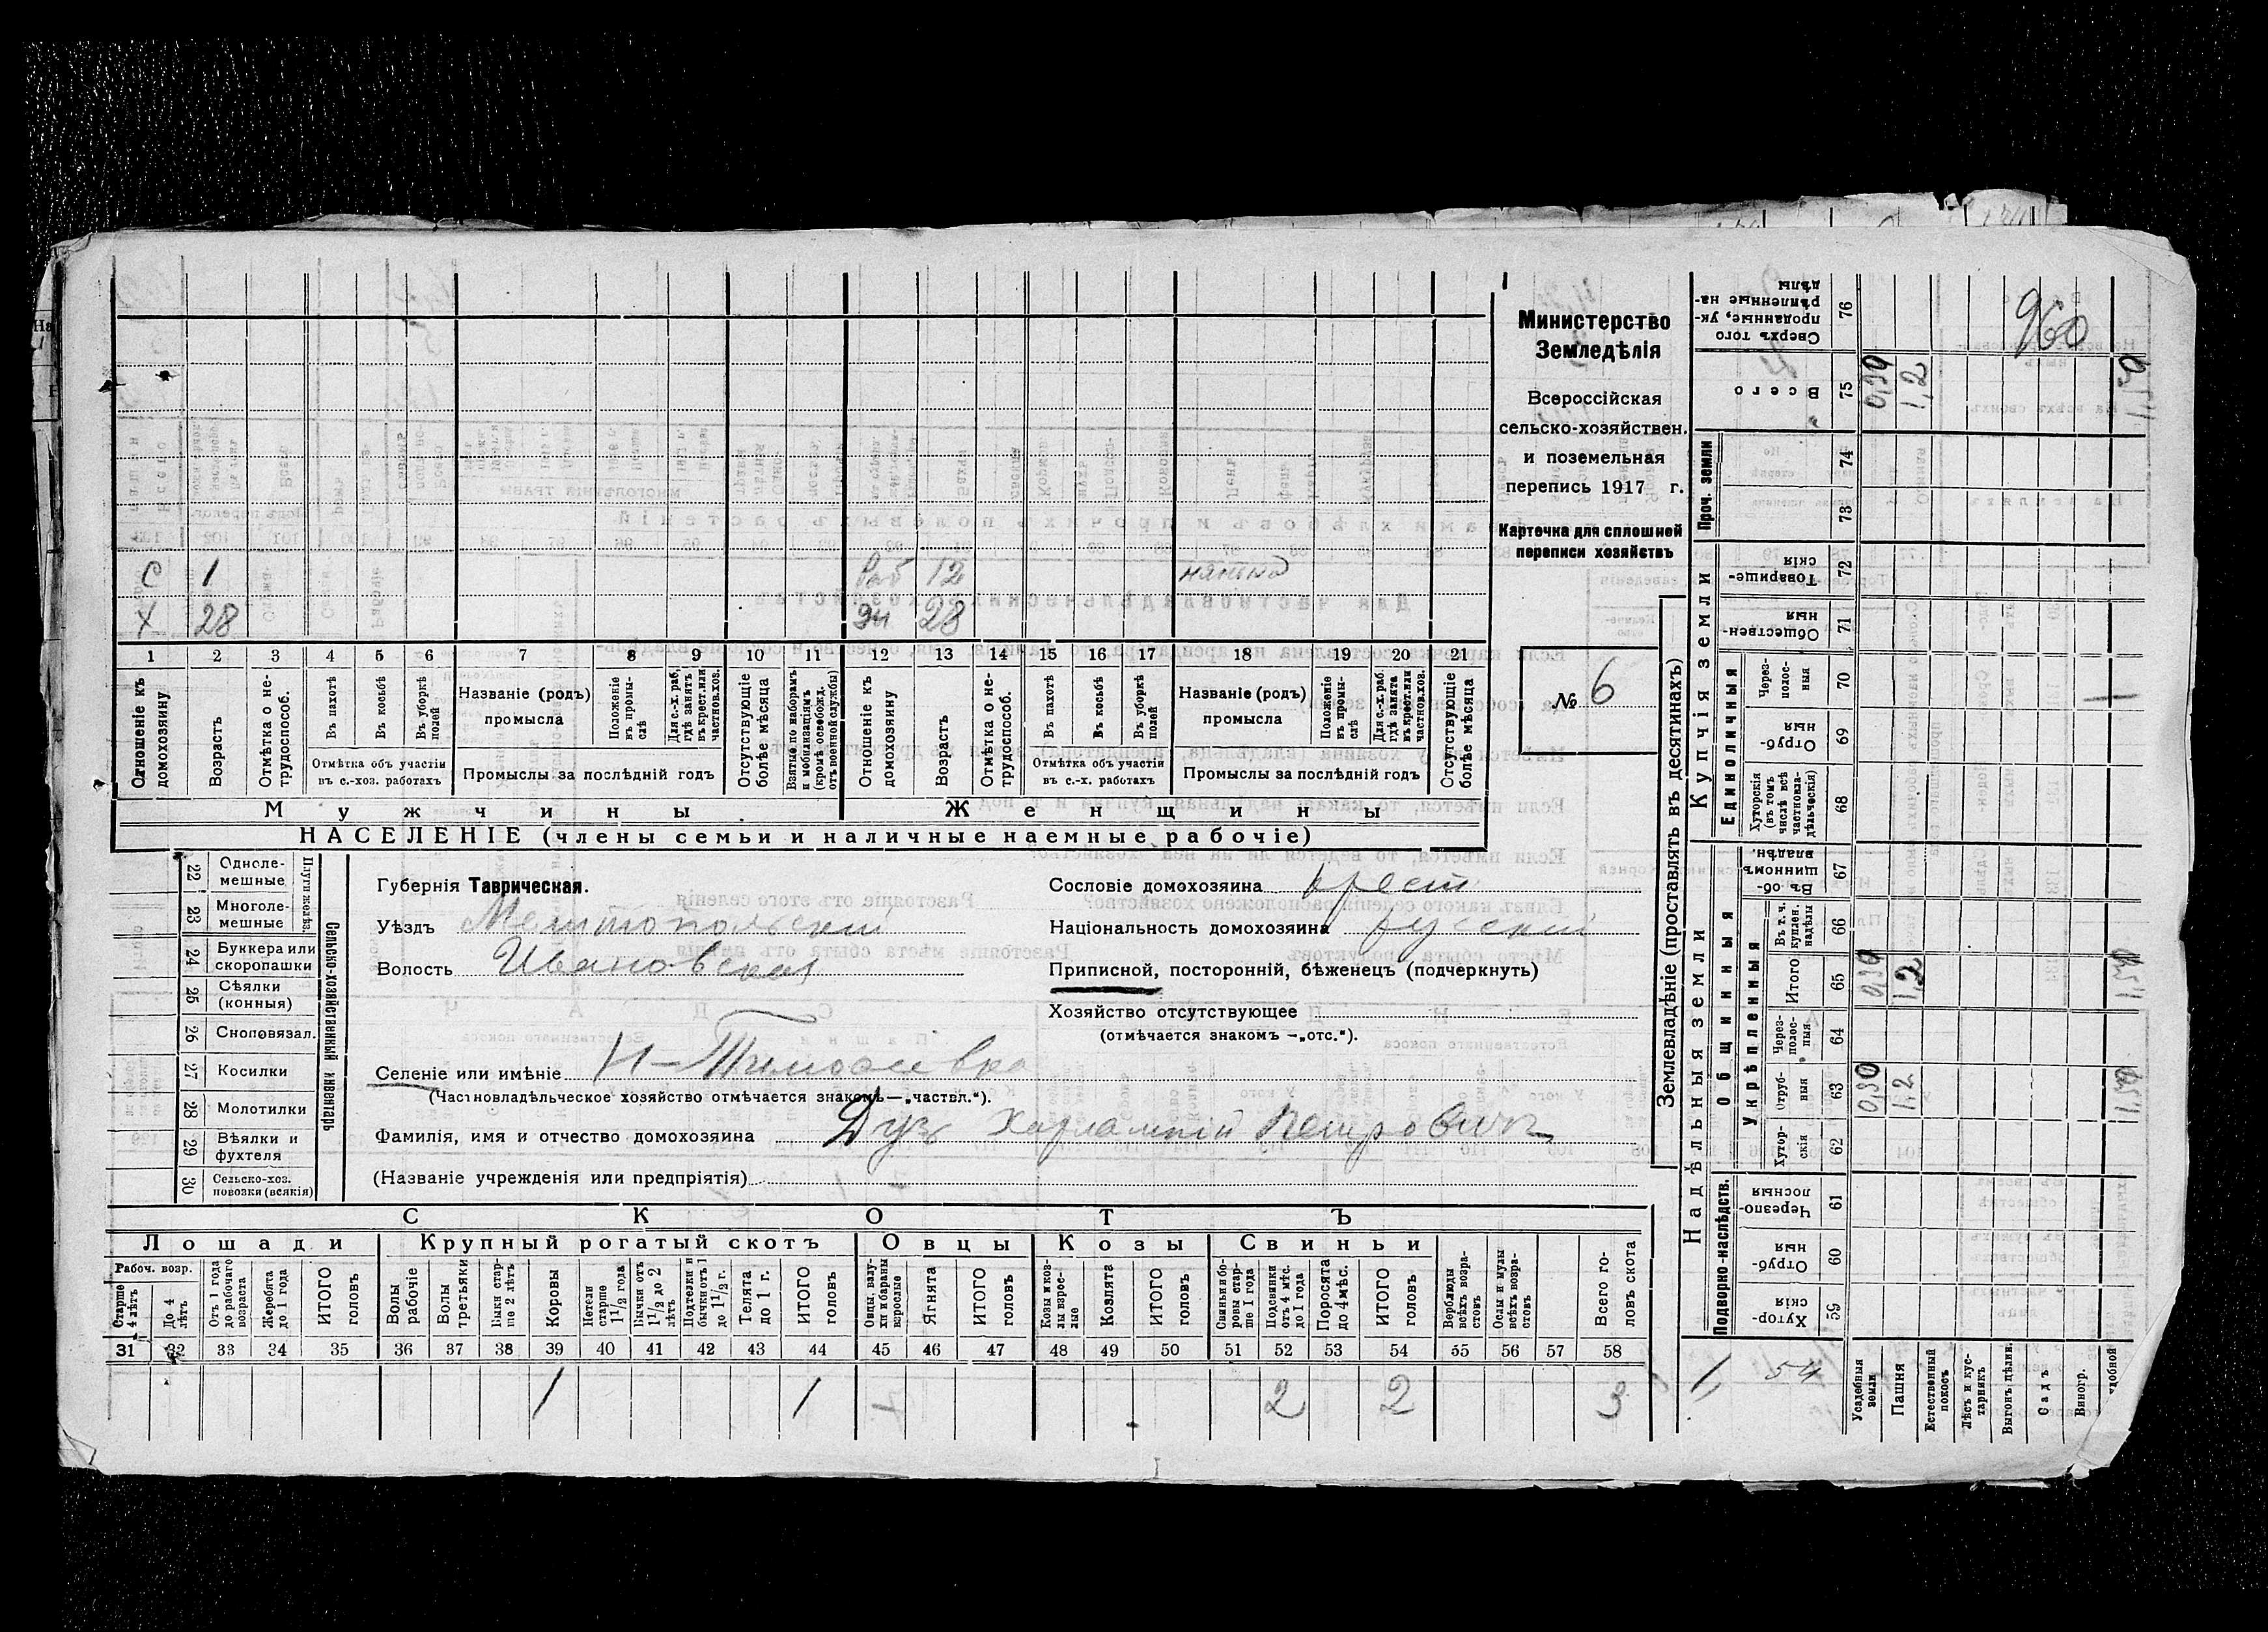 960
Министерство
Земледѣлія
Всероссійская
сельско-хозяйствен.
и поземельная
перепись 1917 г.
Карточка для сплошной
переписи хозяйствъ
№ 6
С 1 Раб 12 нянька
Х 28 Эн 28
1 2 3 4 5 6 7 8 9 10 11 12 13 14 15 16 17 18 19 20 21
Отношеніе къ домохозяину.
Возрастъ
Отмѣтка о нетрудоспособ.
Въ пахотѣ
Въ косьбѣ
Въ уборкѣ полей
Отмѣтка объ участіи въ с.-хоз. работахъ
Названіе (родъ) промысла
Положеніе въ промыслѣ
Для с.-х. раб. гдѣ занятъ въ крест. или частнов. хоз.
Промыслы за послѣдній годъ
Отсутствующіе болѣе мѣсяца
Взятые по наборамъ и мобилизаціямъ (кромѣ освобожд. отъ военной службы)
Отношеніе къ домохозяину
Возрастъ
Отмѣтка о нетрудоспособ.
Въ пахотѣ
Въ косьбѣ
Въ уборкѣ полей
Отмѣтка объ участіи въ с.-х. работахъ
Названіе (родъ) промысла
Положеніе въ промыслѣ
Для с.-х. раб. гдѣ занята въ крест. или частнов. хоз.
Промыслы за послѣдній годъ
Отсутствующіе болѣе мѣсяца
Мужчины Женщины
НАСЕЛЕНІЕ (члены семьи и наличные наемные рабочіе)
Сельско-хозяйственный инвентарь
Плуги желѣз.
22 Однолемешные
23 Многолемешные
24 Буккера или скоропашки
25 Сѣялки (конныя)
26 Сноповязал.
27 Косилки
28 Молотилки
29 Вѣялки и фухтеля
30 Сельско-хоз. повозки (всякія)
Губернія Таврическая.
Уѣздъ Мелитопольскій
Волость Ивановская
Сословіе домохозяина крест.
Національность домохозяина русскій
Приписной, посторонній, бѣженецъ (подчеркнуть)
Хозяйство отсутствующее
(отмѣчается знакомъ —„отс.“).
Селеніе или имѣніе Н-Тимошевка
(Частновладѣльческое хозяйство отмѣчается знакомъ—„частвл.“).
Фамилія, имя и отчество домохозяина Дузь Харлампій Петровичъ
(Названіе учрежденія или предпріятія)
СКОТЪ
Лошади Крупный рогатый скотъ Овцы Козы Свиньи
Рабоч. возр.
Старше 4 лѣтъ
До 4 лѣтъ
Отъ 1 года до рабочаго возраста
Жеребята до 1 года
ИТОГО головъ
Волы рабочіе
Волы третьяки
Быки старше 2 лѣтъ
Коровы
Нетели старше 1 1/2 года
Бычки отъ 1 1/2 до 2 лѣтъ
Подтелки и бычки отъ 1 до 1 1/2 г.
Телята до 1 г.
ИТОГО головъ
Овцы, валухи и бараны взрослые
Ягнята
ИТОГО головъ
Козы и козлы взрослые
Козлята
ИТОГО головъ
Свиньи и боровы старше 1 года
Подсвинки отъ 4 мѣс. до 1 года
Поросята до 4 мѣс.
ИТОГО головъ
Верблюды всѣхъ возрастовъ
Ослы и мулы всѣхъ возрастовъ
Всего головъ скота
31 32 33 34 35 36 37 38 39 40 41 42 43 44 45 46 47 48 49 50 51 52 53 54 55 56 57 58
1 1 2 2 3
Землевладѣніе (проставлять въ десятинахъ)
Сверхъ того проданные, укрѣпленные надѣлы 76
Всего 75 0,39 1,2
Проч. земли
74
73
Купчія земли
Товарищескія 72
Общественныя 71
Единоличныя
Черезполосныя 70
Отрубныя 69
Хуторскія (въ томъ числѣ всѣ частновладѣльческія) 68
Надѣльныя земли
Общинныя
Въ общинномъ владѣн. 67
Укрѣпленныя
Въ т. ч. куплен. надѣлы 66
Итого 65 0,39 1,2
Черезполосныя 64
Отрубныя 63 0,39 1,2
Хуторскія 62
Подворно-наслѣдств.
Черезполосныя 61
Отрубныя 60
Хуторскія 59
1, 54
Усадебныя земли
Пашня
Естественный покосъ
Лѣсъ и кустарникъ
Выгонъ дѣлин.
Садъ
Виногр.
удобной